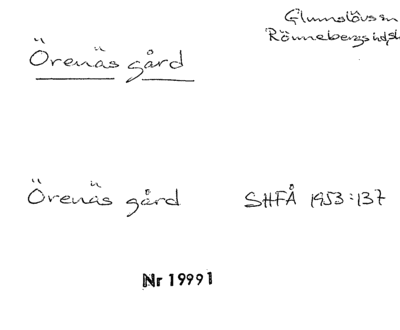 Glumslövs sn
Rönnebergs hd
Örenäs gård
Örenäs gård SHFÅ 1953:137
Nr 19991